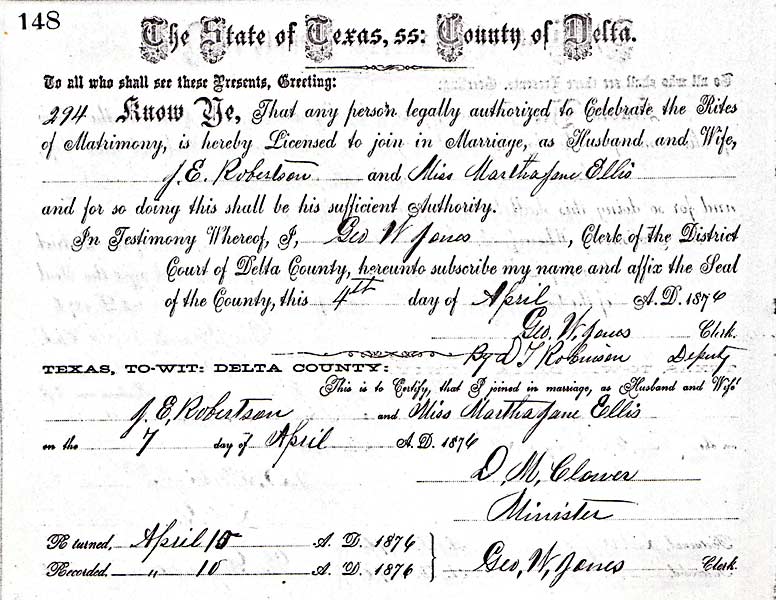 148
The State of Texas, ss: County of Delta.
To all who shall see these Presents, Greeting:
294 Know Ye, That any person legally authorized to Celebrate the Rites
of Matrimony, is hereby Licensed to join in Marriage, as Husband and Wife,
J. E. Robertson and Miss Martha Jane Ellis
and for so doing this shall be his sufficient Authority.
In Testimony Whereof, I, Geo W Jones, Clerk of the District
Court of Delta County, hereunto subscribe my name and affix the Seal
of the County, this 4th day of April A. D. 1876
Geo, W, Jones Clerk.
By D T Robinson Deputy
TEXAS, TO-WIT: DELTA COUNTY:
This is to Certify, that I joined in marriage, as Husband and Wife
J. E, Robertson and Miss Martha Jane Ellis
on the 7 day of April A. D. 1876
D, M, Clower
Minister
Returned, April 10 A. D. 1876
Recorded " 10 A. D. 1876
Geo, W, Jones Clerk.